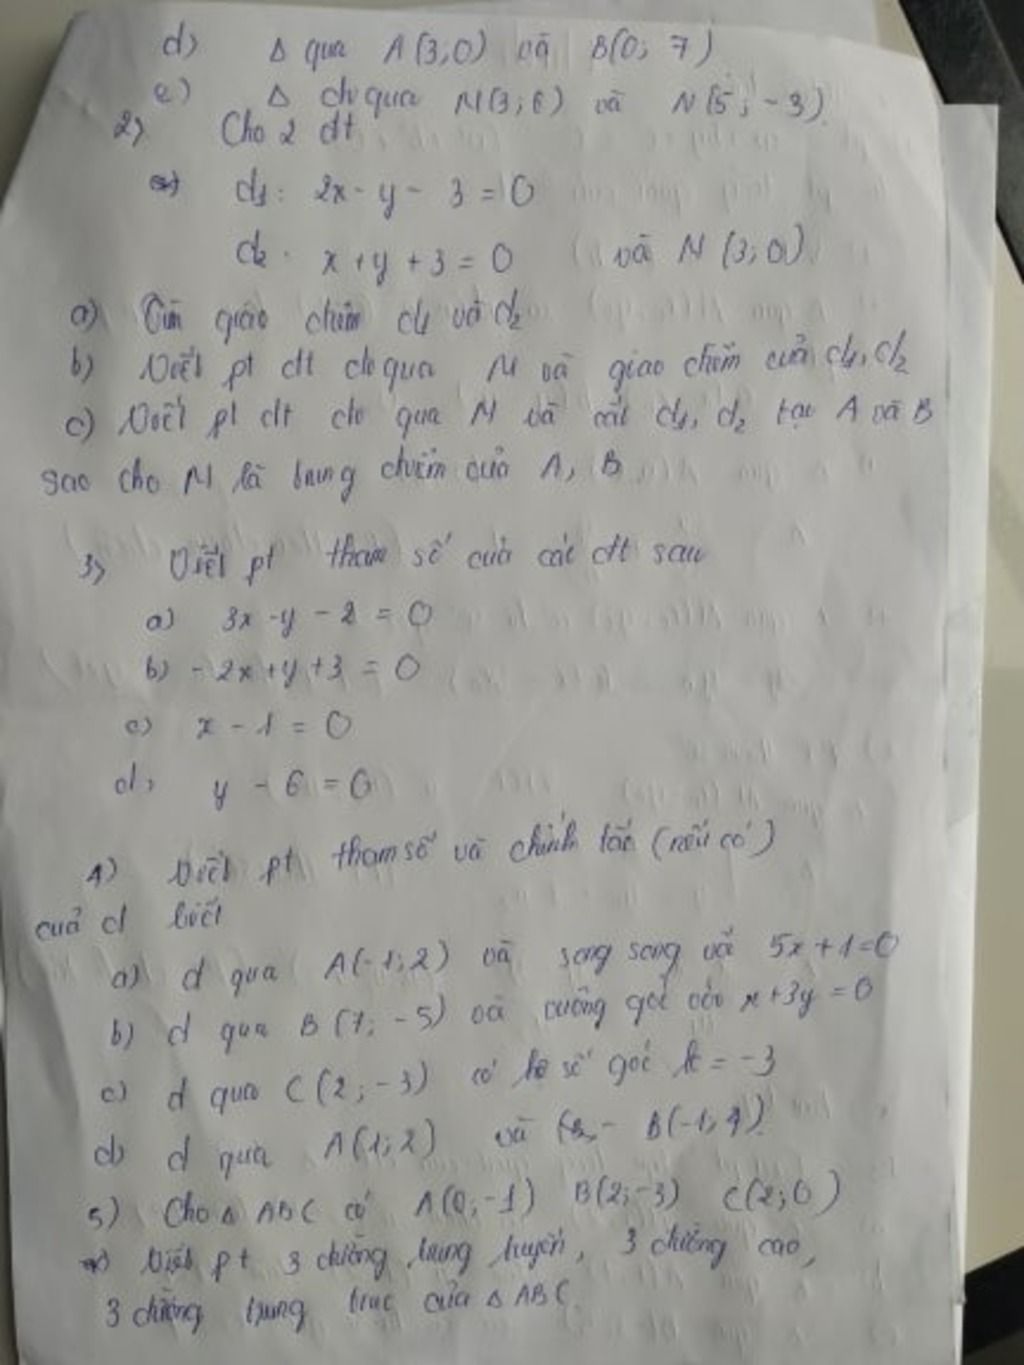 d) Δ qua A(3;0) và B(0; 7)
e) Δ đi qua M(3;6) và N(5; -3)
2) Cho 2 đt
d1: 2x - y - 3 = 0
d2: x + y + 3 = 0 và M (3; 0)
a) Tìm giao điểm d1 và d2
b) Viết pt đt đi qua M và giao điểm của d1, d2
c) Viết pt đt đi qua M và cắt d1, d2 tại A và B
sao cho M là trung điểm của A, B
3) Viết pt tham số của các đt sau
a) 3x - y - 2 = 0
b) -2x + y + 3 = 0
c) x - 1 = 0
d) y - 6 = 0
4) Viết pt tham số và chính tắc (nếu có)
của d biết
a) d qua A(-1; 2) và song song với 5x + 1 = 0
b) d qua B (7; -5) và vuông góc với x + 3y = 0
c) d qua C (2; -3) có hệ số góc k = -3
d) d qua A(1; 2) và B(-1; 4)
5) Cho Δ ABC có A(0; -1) B(2; -3) C(2; 0)
Viết pt 3 đường trung tuyến, 3 đường cao,
3 đường trung trực của Δ ABC.